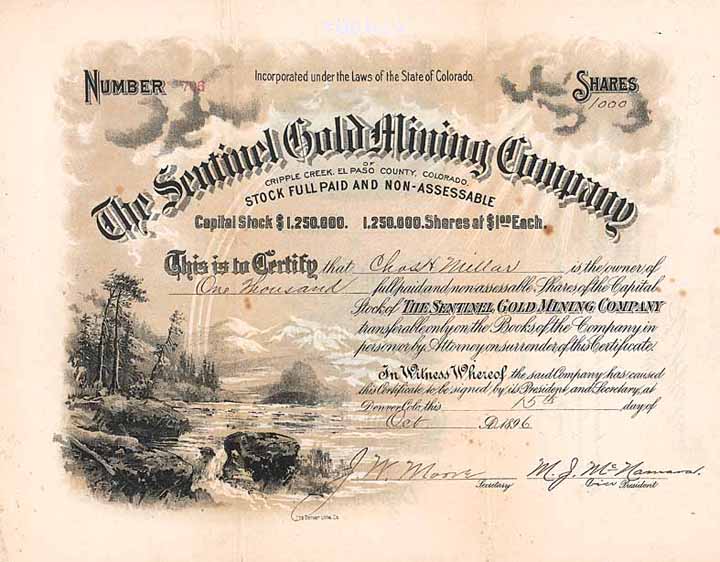 Incorporated under the Laws of the State of Colorado.
NUMBER 706
SHARES
1000
The Sentinel Gold Mining Company
OF
CRIPPLE CREEK, EL PASO COUNTY, COLORADO.
STOCK FULL PAID AND NON-ASSESSABLE
Capital Stock $1,250.000. 1,250.000. Shares at $1.00 Each.
This is to Certify that Chas H Millar is the owner of
One Thousand full paid and non assessable Shares of the Capital
Stock of THE SENTINEL GOLD MINING COMPANY
transferable only on the Books of the Company in
person or by Attorney on surrender of this Certificate.
In Witness Whereof, the said Company has caused
this Certificate to be signed by its President and Secretary, at
Denver, Colo, this 15th day of
Oct A.D. 1896
J. W. Moore
Secretary
M. J. McNamara.
Vice President
The Denver Litho. Co.